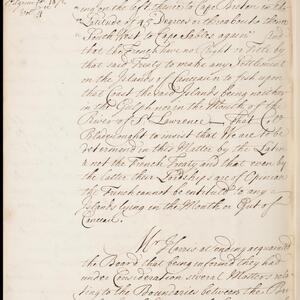 ing on the left thence to Cape Breton in the
Latitude of 45 Degrees or thereabouts thence
South West to Cape Sables again: And
that the French have not Right or Title by
that said Treaty to make any Settlement
on the Islands of Canceau or to fish upon
that Coast the said Islands being neither
in the Gulph nor in the Mouth of the
River of St. Lawrence. That Colo
Bladen ought to insist that We are to be
determin'd in this Matter by the Latin
& not the French Treaty and that even by
the latter their Lordships are of Opinion
the French cannot be intituled to any
Islands lying in the Mouth or Gut of
Canceau.
Mr Harris attending acquainted
the Board that being informed they had
under Consideration several Matters rela
ting to the Boundaries between the